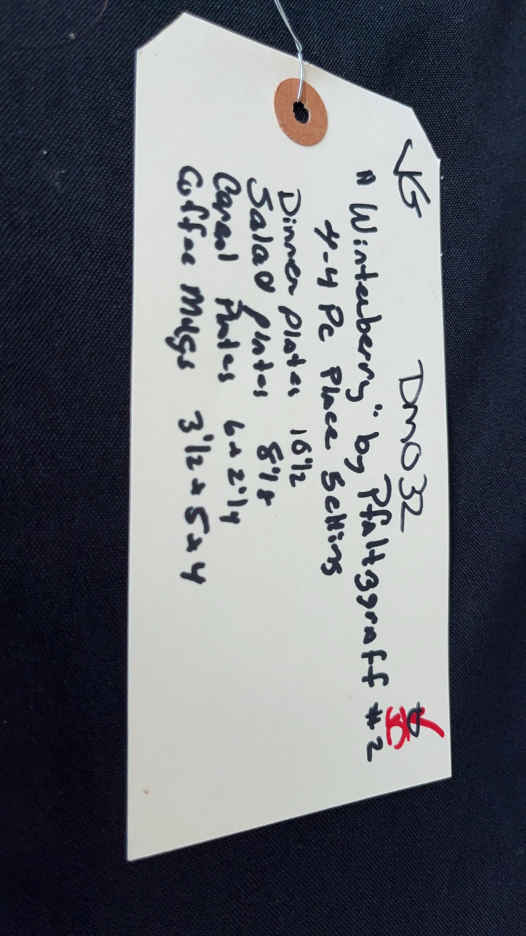 VG DMO32
"Winterberry" by Pfaltzgraff #2
4-4 Pc Place Setting
Dinner Plates 10 1/2
Salad Plates 8 1/8
Cereal Plates 6 x 2 1/4
Coffee Mugs 3 1/2 x 5 x 4